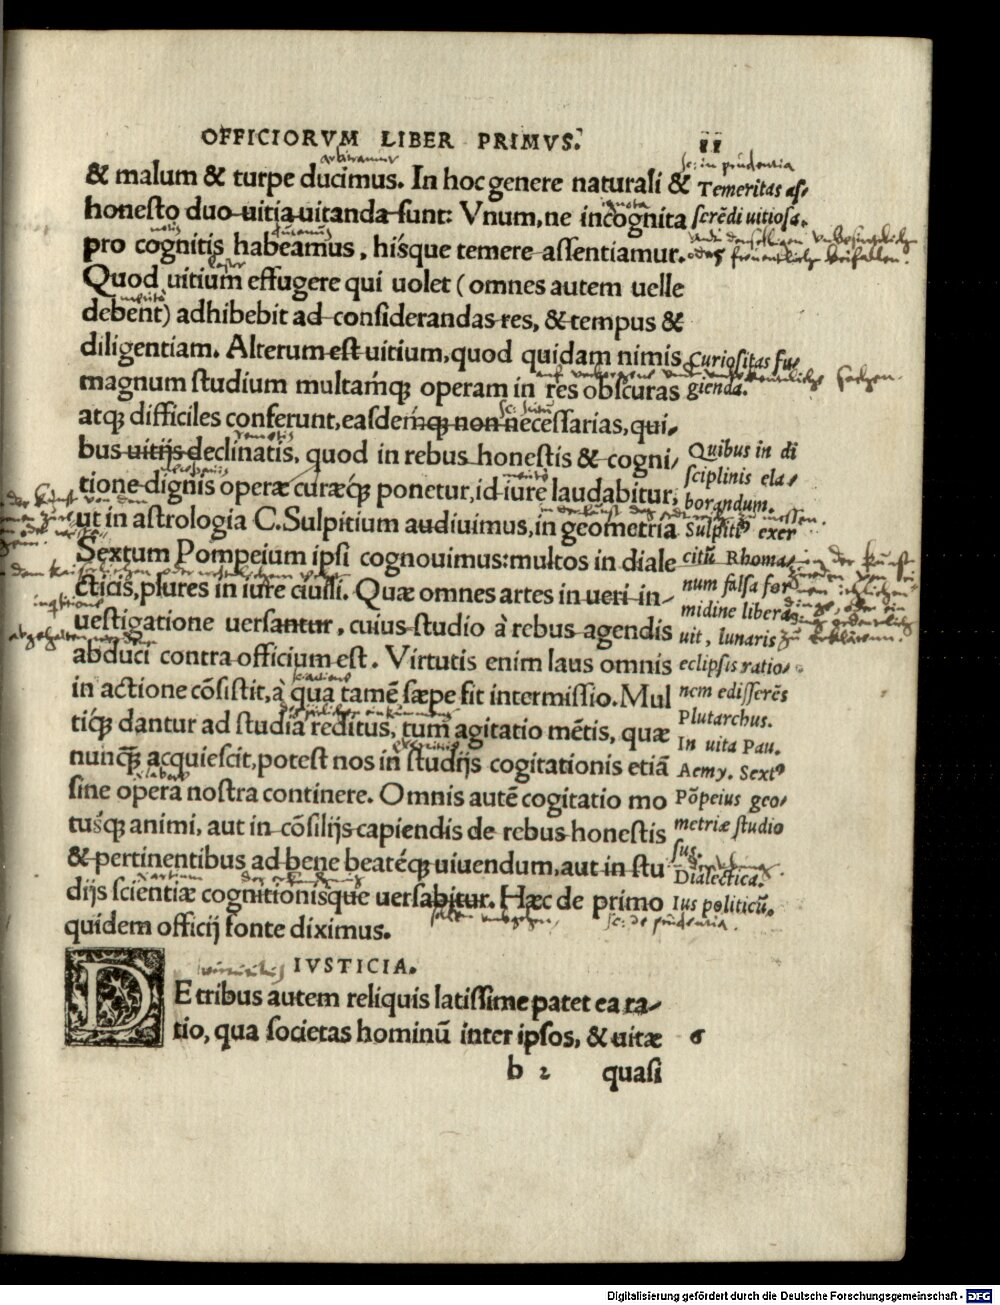 OFFICIORVM LIBER PRIMVS. 11
& malum & turpe ducimus. In hoc genere naturali &
honesto duo uitia uitanda sunt: Vnum, ne incognita
pro cognitis habeamus, hisque temere assentiamur.
Quod uitium effugere qui uolet (omnes autem uelle
debent) adhibebit ad considerandas res, & tempus &
diligentiam. Alterum est uitium, quod quidam nimis
magnum studium multamq́; operam in res obscuras
atq́; difficiles conferunt, easdemq́; non necessarias, qui-
bus uitijs declinatis, quod in rebus honestis & cogni-
tione dignis operæ curæq́; ponetur, id iure laudabitur,
ut in astrologia C. Sulpitium audiuimus, in geometria
Sextum Pompeium ipsi cognouimus: multos in diale
cticis, plures in iure ciuili. Quæ omnes artes in ueri in-
uestigatione uersantur, cuius studio à rebus agendis
abduci contra officium est. Virtutis enim laus omnis
in actione cõsistit, à qua tamẽ sæpe fit intermissio. Mul
tiq́; dantur ad studia reditus, tum agitatio mẽtis, quæ
nunq̃; acquiescit, potest nos in studijs cogitationis etiã
sine opera nostra continere. Omnis autẽ cogitatio mo
tusq́; animi, aut in cõsilijs capiendis de rebus honestis
& pertinentibus ad bene beateq́; uiuendum, aut in stu
dijs scientiæ cognitionisque uersabitur. Hæc de primo
quidem officij fonte diximus.
IVSTICIA.
DE tribus autem reliquis latissime patet ea ra-
tio, qua societas hominũ inter ipsos, & uitæ
b 2 quasi
arbitramur
ignota
notis
sc: in prudentia
Temeritas as-
serẽdi uitiosa.
Curiositas fu-
gienda.
Quibus in di
sciplinis ela-
borandum.
Sulpitiꝰ exer
citũ Rhoma-
num falsa for
midine libera
uit, lunaris
eclipsis ratio-
nem edisserẽs
Plutarchus.
In uita Pau.
Aemy. Sextꝰ
Põpeius geo-
metriæ studio
sus.
Dialectica.
Ius politicũ.
sc: de prudentia.
6
Digitalisierung gefördert durch die Deutsche Forschungsgemeinschaft - DFG